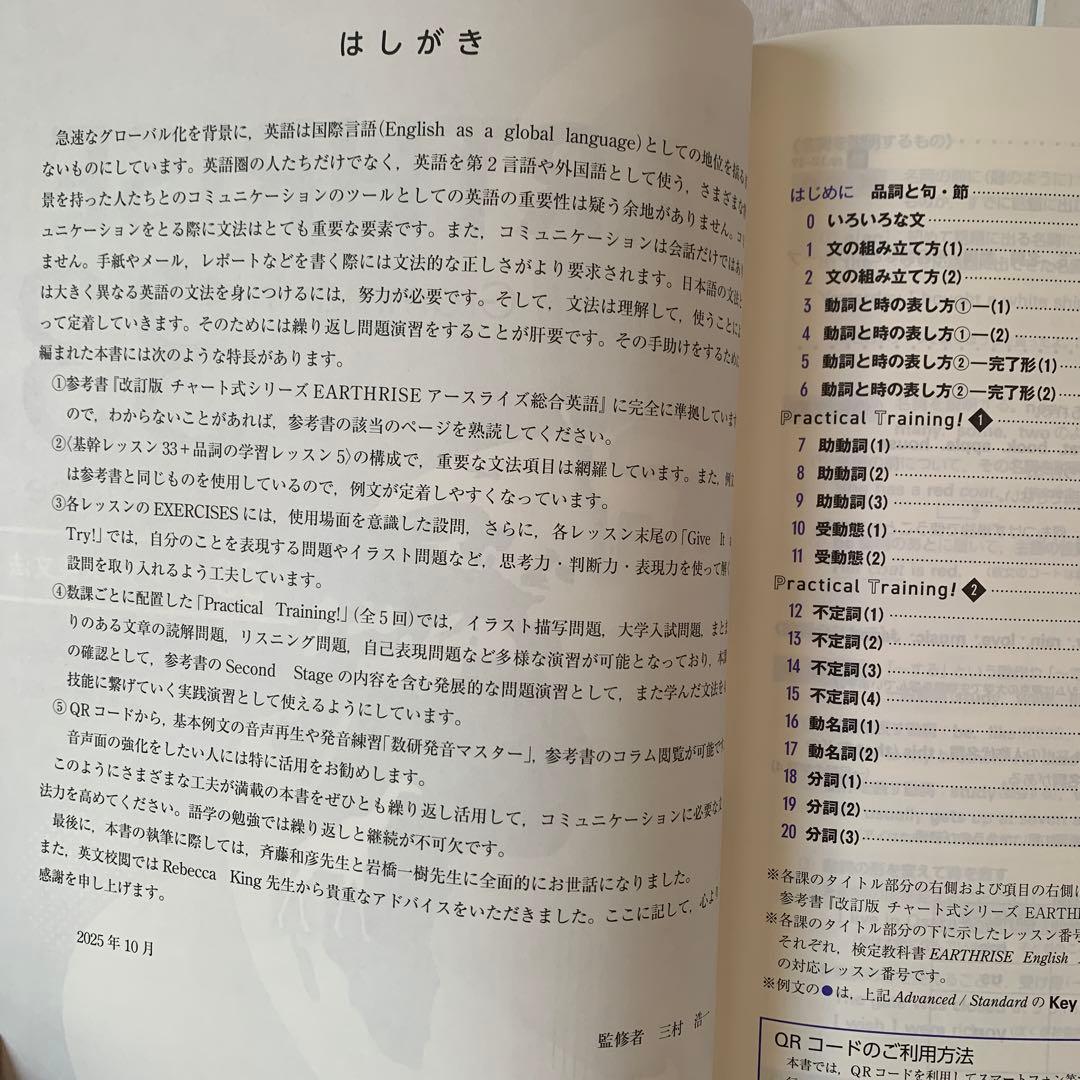 はしがき
急速なグローバル化を背景に，英語は国際言語(English as a global language)としての地位を揺る
ないものにしています。英語圏の人たちだけでなく，英語を第２言語や外国語として使う，さまざまな
景を持った人たちとのコミュニケーションのツールとしての英語の重要性は疑う余地がありません。コ
ュニケーションをとる際に文法はとても重要な要素です。また，コミュニケーションは会話だけではあ
ません。手紙やメール，レポートなどを書く際には文法的な正しさがより要求されます。日本語の文法
は大きく異なる英語の文法を身につけるには，努力が必要です。そして，文法は理解して，使うことに
って定着していきます。そのためには繰り返し問題演習をすることが肝要です。その手助けをするために
編まれた本書には次のような特長があります。
①参考書『改訂版 チャート式シリーズ EARTHRISE アースライズ総合英語』に完全に準拠しています
ので，わからないことがあれば，参考書の該当のページを熟読してください。
②〈基幹レッスン 33＋品詞の学習レッスン 5〉の構成で，重要な文法項目は網羅しています。また，例文
は参考書と同じものを使用しているので，例文が定着しやすくなっています。
③各レッスンの EXERCISES には，使用場面を意識した設問，さらに，各レッスン末尾の「Give It a
Try!」では，自分のことを表現する問題やイラスト問題など，思考力・判断力・表現力を使って解く
設問を取り入れるよう工夫しています。
④数課ごとに配置した「Practical Training!」(全５回)では，イラスト描写問題，大学入試問題，まと
りのある文章の読解問題，リスニング問題，自己表現問題など多様な演習が可能となっており，本課
の確認として，参考書の Second Stage の内容を含む発展的な問題演習として，また学んだ文法を
技能に繋げていく実践演習として使えるようにしています。
⑤ QR コードから，基本例文の音声再生や発音練習「数研発音マスター」，参考書のコラム閲覧が可能です
音声面の強化をしたい人には特に活用をお勧めします。
このようにさまざまな工夫が満載の本書をぜひとも繰り返し活用して，コミュニケーションに必要な
法力を高めてください。語学の勉強では繰り返しと継続が不可欠です。
最後に，本書の執筆に際しては，斉藤和彦先生と岩橋一樹先生に全面的にお世話になりました。
また，英文校閲では Rebecca King 先生から貴重なアドバイスをいただきました。ここに記して，心より
感謝を申し上げます。
2025 年 10 月
監修者 三村 浩一
はじめに 品詞と句・節
0 いろいろな文
1 文の組み立て方(1)
2 文の組み立て方(2)
3 動詞と時の表し方①―(1)
4 動詞と時の表し方①―(2)
5 動詞と時の表し方②―完了形(1)
6 動詞と時の表し方②―完了形(2)
Practical Training! 1
7 助動詞(1)
8 助動詞(2)
9 助動詞(3)
10 受動態(1)
11 受動態(2)
Practical Training! 2
12 不定詞(1)
13 不定詞(2)
14 不定詞(3)
15 不定詞(4)
16 動名詞(1)
17 動名詞(2)
18 分詞(1)
19 分詞(2)
20 分詞(3)
※各課のタイトル部分の右側および項目の右側に
参考書『改訂版 チャート式シリーズ EARTH
※各課のタイトル部分の下に示したレッスン番号
それぞれ，検定教科書 EARTHRISE English
の対応レッスン番号です。
※例文の●は，上記 Advanced / Standard の Key
QR コードのご利用方法
本書では，QR コードを利用してスマートフォン